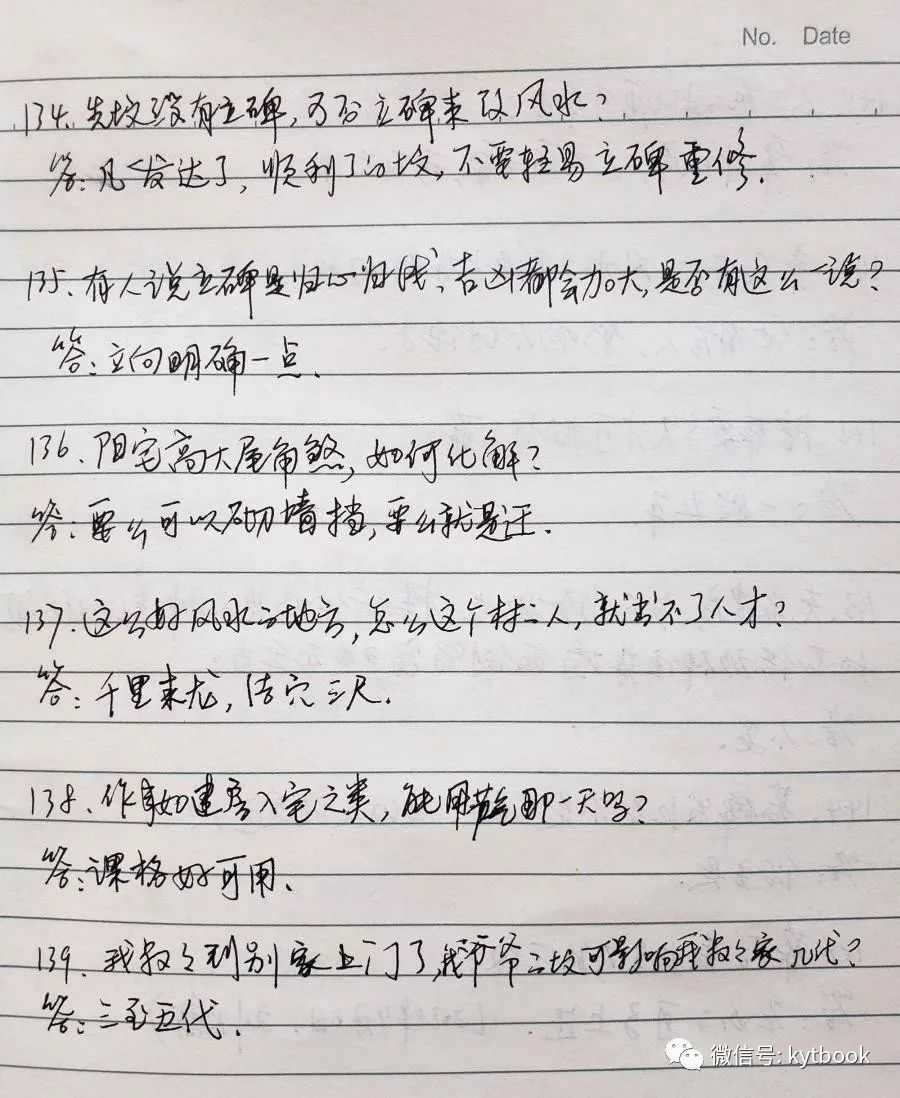 No. Date
134、先坟没有立碑,可否立碑来改风水?
答:凡发达了,顺利了的坟,不要轻易立碑重修.
135、有人说立碑是归心归线、吉凶都会加大,是否有这么一说?
答:立向明确一点.
136、阳宅高大屋角煞,如何化解?
答:要么可以砌墙挡,要么就是迁.
137、这么好风水的地方,怎么这个村的人,就出不了人才?
答:千里来龙,结穴三尺.
138、作事如建房入宅之类,能用节气那一天吗?
答:课格好可用、
139、我叔叔到别家上门了,我爷爷的坟可影响我叔叔家几代?
答:三至五代.
微信号: kytbook